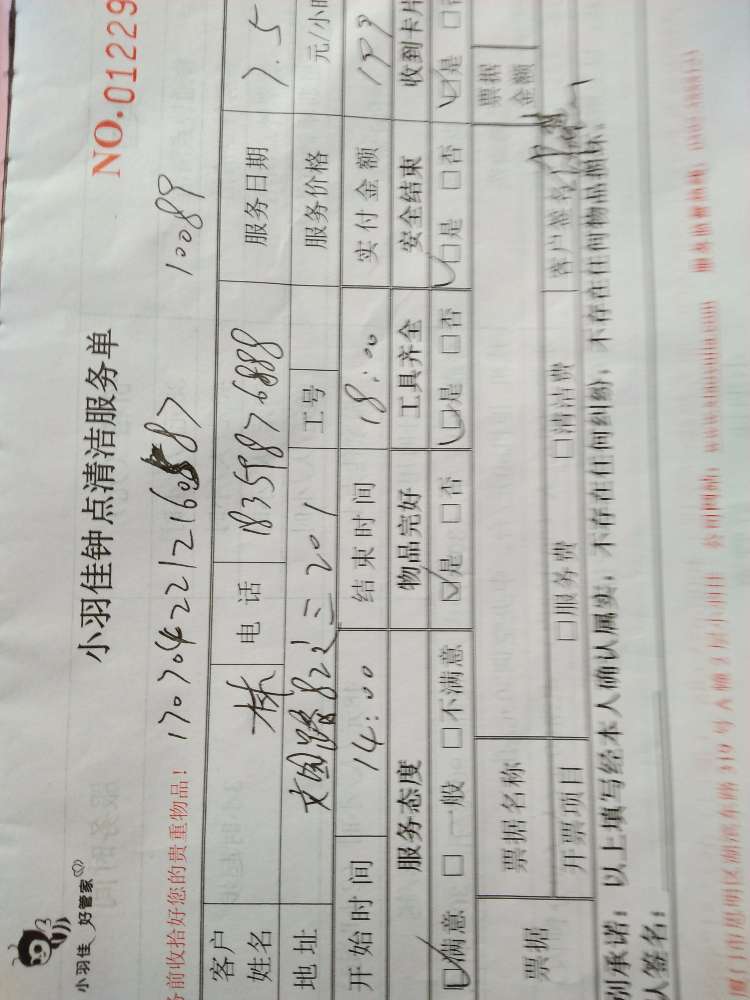 小羽佳 好管家
小羽佳钟点清洁服务单
NO.01229
务前收拾好您的贵重物品！ 10089
客户姓名 林 电话 18359876888 服务日期 7.5
地址 文园路82之三201 工号 服务价格 元/小时
开始时间 14:00 结束时间 18:00 实付金额 199
服务态度 物品完好 工具齐全 安全结束 收到卡片
☑满意 □一般 □不满意 ☑是 □否 ☑是 □否 ☑是 □否 ☑是 □否
票据 票据名称 票据金额
开票项目 □服务费 □清洁费 客户签名
列承诺：以上填写经本人确认属实，不存在任何纠纷，不存在任何物品损坏。
人签名：
厦门市思明区湖滨东路319号A幢3层小羽佳 公司网站：